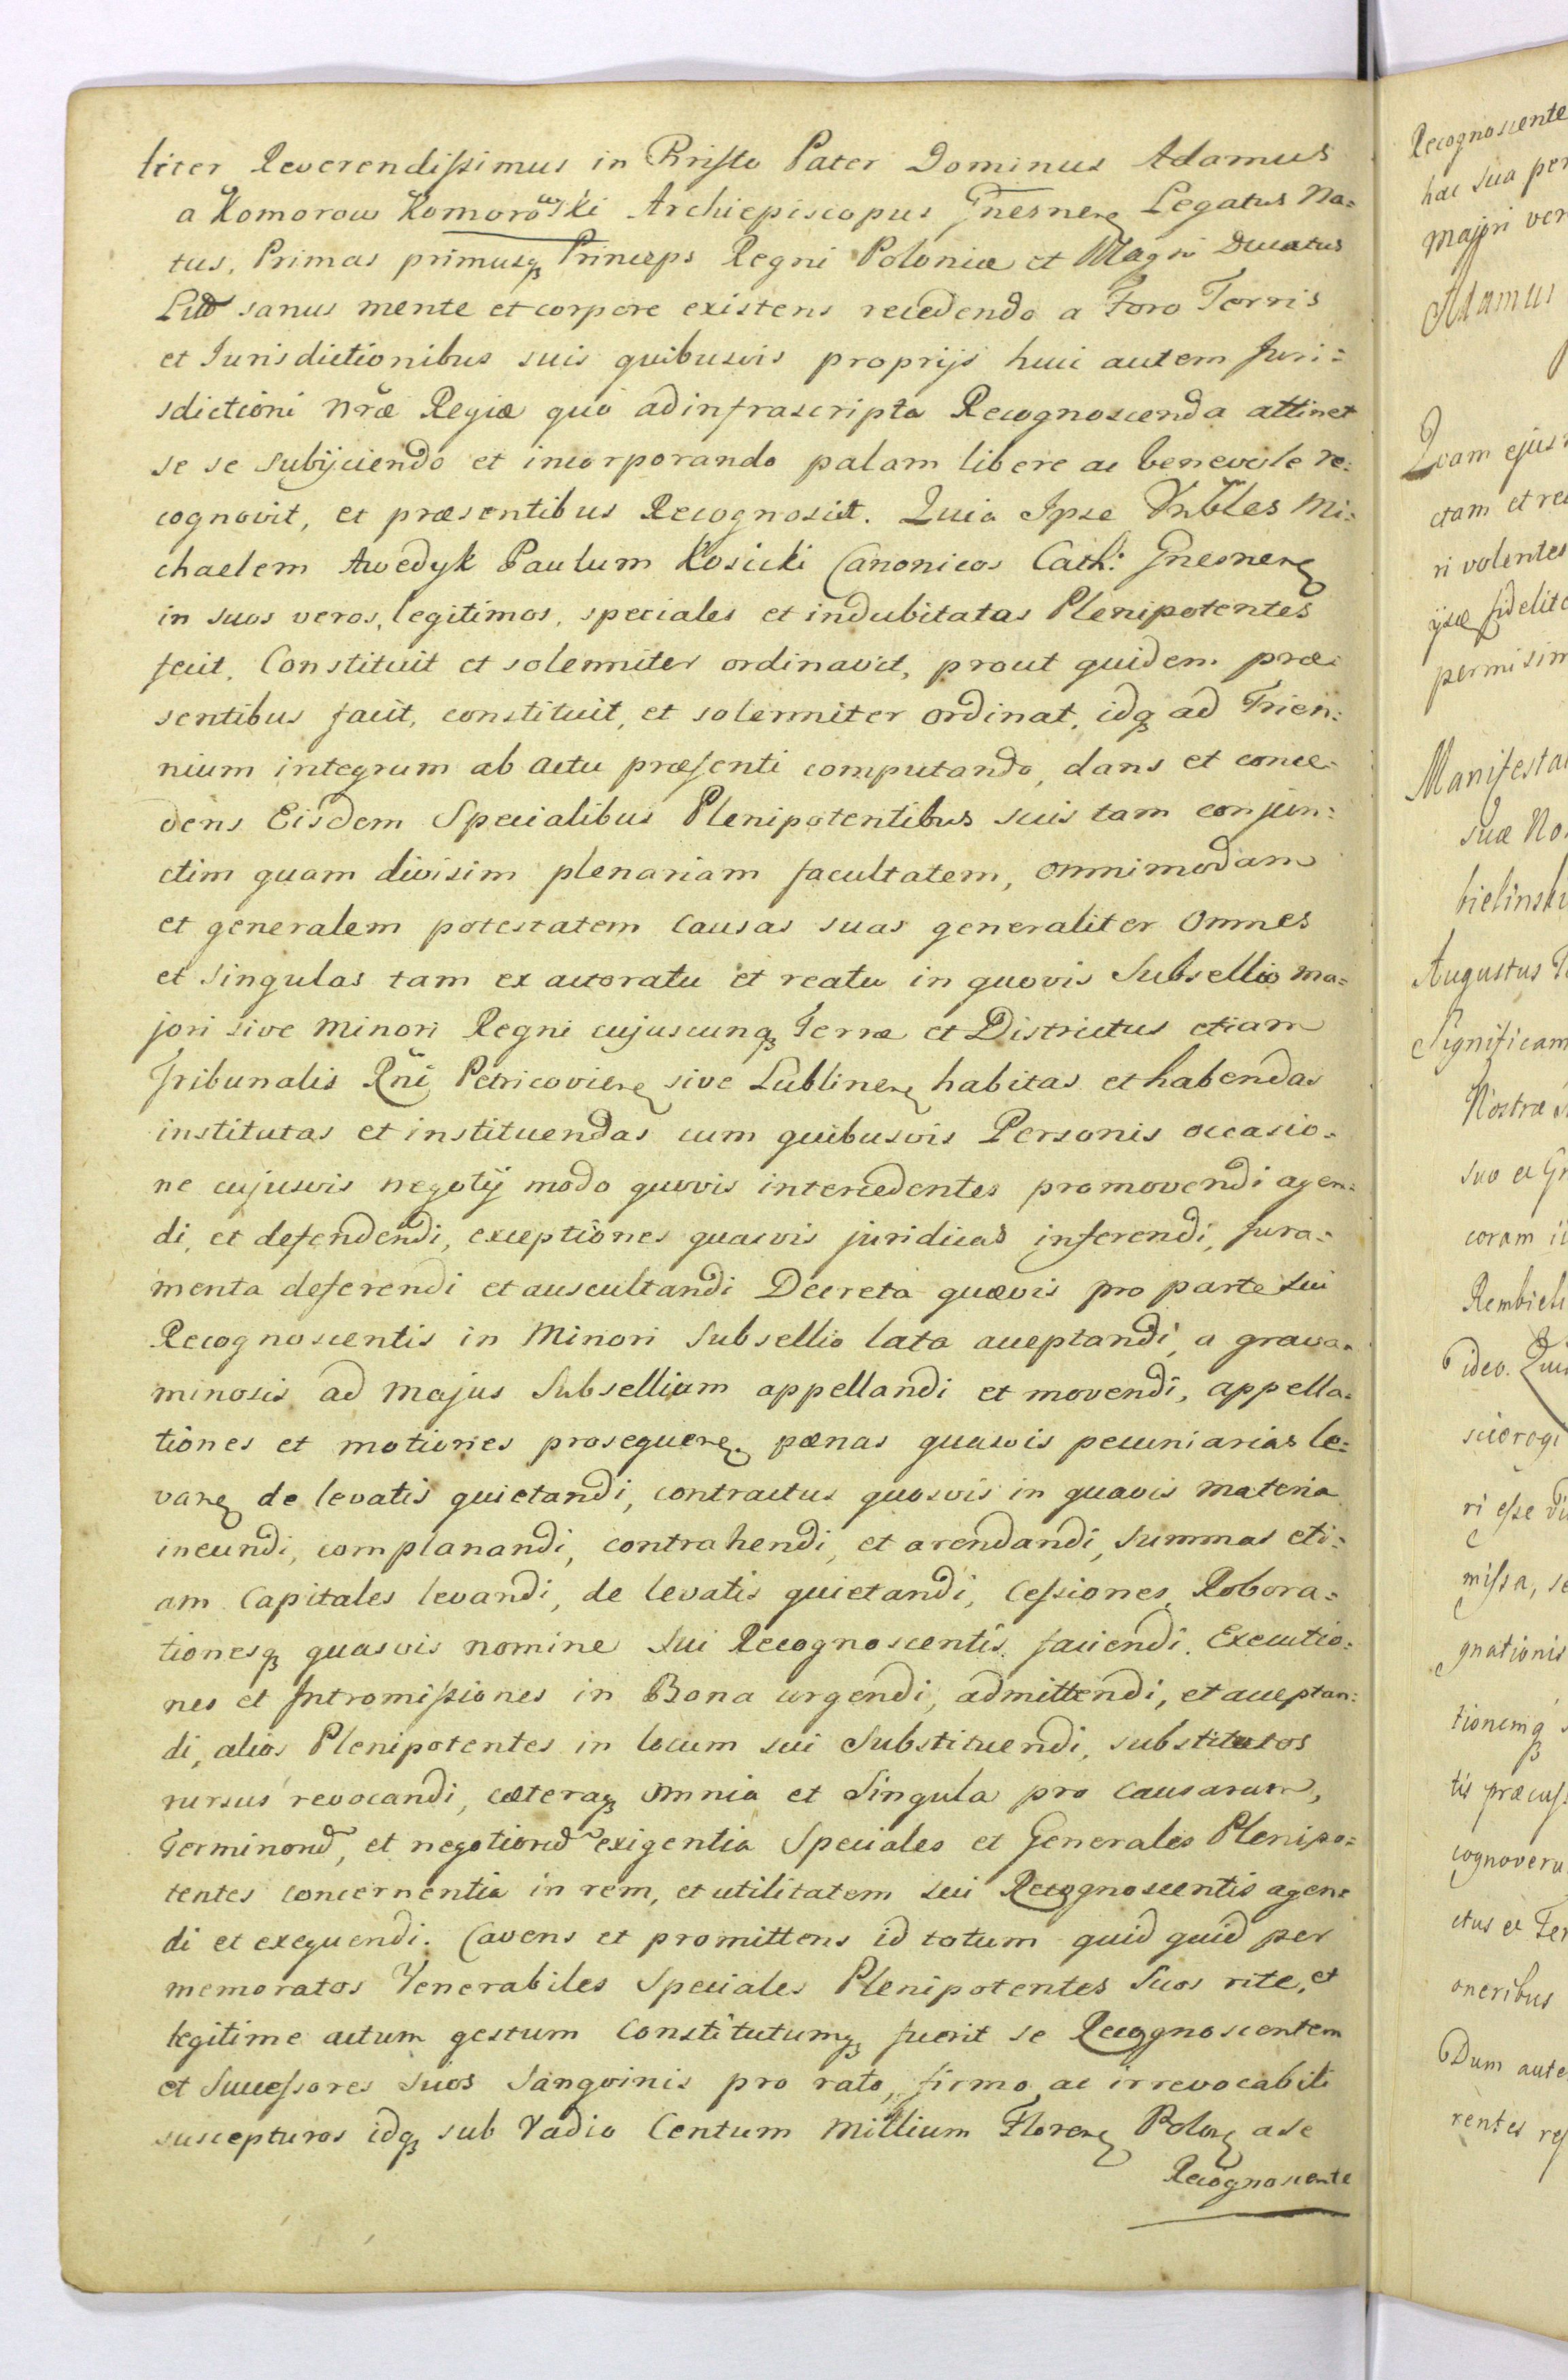 liter Reverendissimus in Christo Pater Dominus Adamus
a Komorow Komorowski Archiepiscopus Gnesnen Legatus Na=
tus, Primas primusq Princeps Regni Poloniæ et Magni Ducatus
Litt sanus mente et corpore existens recedendo a Foro Terris
et Jurisdictionibus suis quibusvis proprijs huic autem Juri=
sdictioni nræ Regiæ quo ad infrascripta Recognoscenda attinet
se se subijciendo et incorporando palam libere ac benevole re=
cognovit, et præsentibus Recognoscit. Quia Ipse Vnbles Mi=
chaelem Awedyk Paulum Kosicki Canonicos Cath: Gnesnen
in suos veros, legitimos, speciales et indubitatas Plenipotentes
fecit, Constituit et solenniter ordinavit, prout quidem præ=
sentibus facit, constituit, et solenniter ordinat, idq ad Trien=
nium integrum ab actu præsenti computando, dans et conce=
dens Eisdem Specialibus Plenipotentibus suis tam conjun=
ctim quam divisim plenariam facultatem, omnimodam
et generalem potestatem causas suas generaliter omnes
et singulas tam ex actoratu et reatu in quovis Subsellio ma=
jori sive minori Regni cujuscunq Terræ et Districtus etiam
Tribunalis Rni Petricovien sive Lublinen habitas et habendas
institutas et instituendas cum quibusvis Personis occasio=
ne cujusvis negotij modo quovis intercedentes promovendi agen=
di, et defendendi, exceptiones quasvis juridicas inferendi, Jura=
menta deferendi et auscultandi Decreta quævis pro parte sui
Recognoscentis in Minori Subsellio lata acceptandi, a grava=
minosis ad majus Subsellium appellandi et movendi, appella=
tiones et motiones prosequen, pænas quasvis pecuniarias le=
van de levatis quietandi, contractus quosvis in quavis materia
ineundi, complanandi, contrahendi, et arendandi, summas eti=
am Capitales levandi, de levatis quietandi, Cessiones, Robora=
tionesq quasvis nomine sui Recognoscentis faciendi. Executio=
nes et Intromissiones in Bona urgendi, admittendi, et acceptan=
di, alios Plenipotentes in locum sui Substituendi, substitutos
rursus revocandi, cæteraq omnia et singula pro causarum,
Terminord, et negotiord exigentia Speciales et Generales Plenipo=
tentes concernentia in rem, et utilitatem sui Recognoscentis agen=
di et exequendi. Cavens et promittens id totum quid quid per
memoratos Venerabiles Speciales Plenipotentes Suos rite, et
legitime actum gestum Constitutumq fuerit se Recognoscentem
et Successores suos Sangvinis pro rato, firmo, ac irrevocabili
suscepturos idq sub Vadio Centum Millium Floren Polon a se
Recognoscente
Recognoscente
hac sua per
majori ver
Adamus
Quam ejus
ctam et re
ri volentes
fidelite
permisim
Manifesta
suæ No
bielinski
Augustus
Significam
Nostræ
suo et Gn
coram
Rembieli
ideo. Qui
ri esse
missa, se
gnationis
tionemq
tis præcus
cognoveru
ctus et Ter
oneribus
Dum aute
rentes res